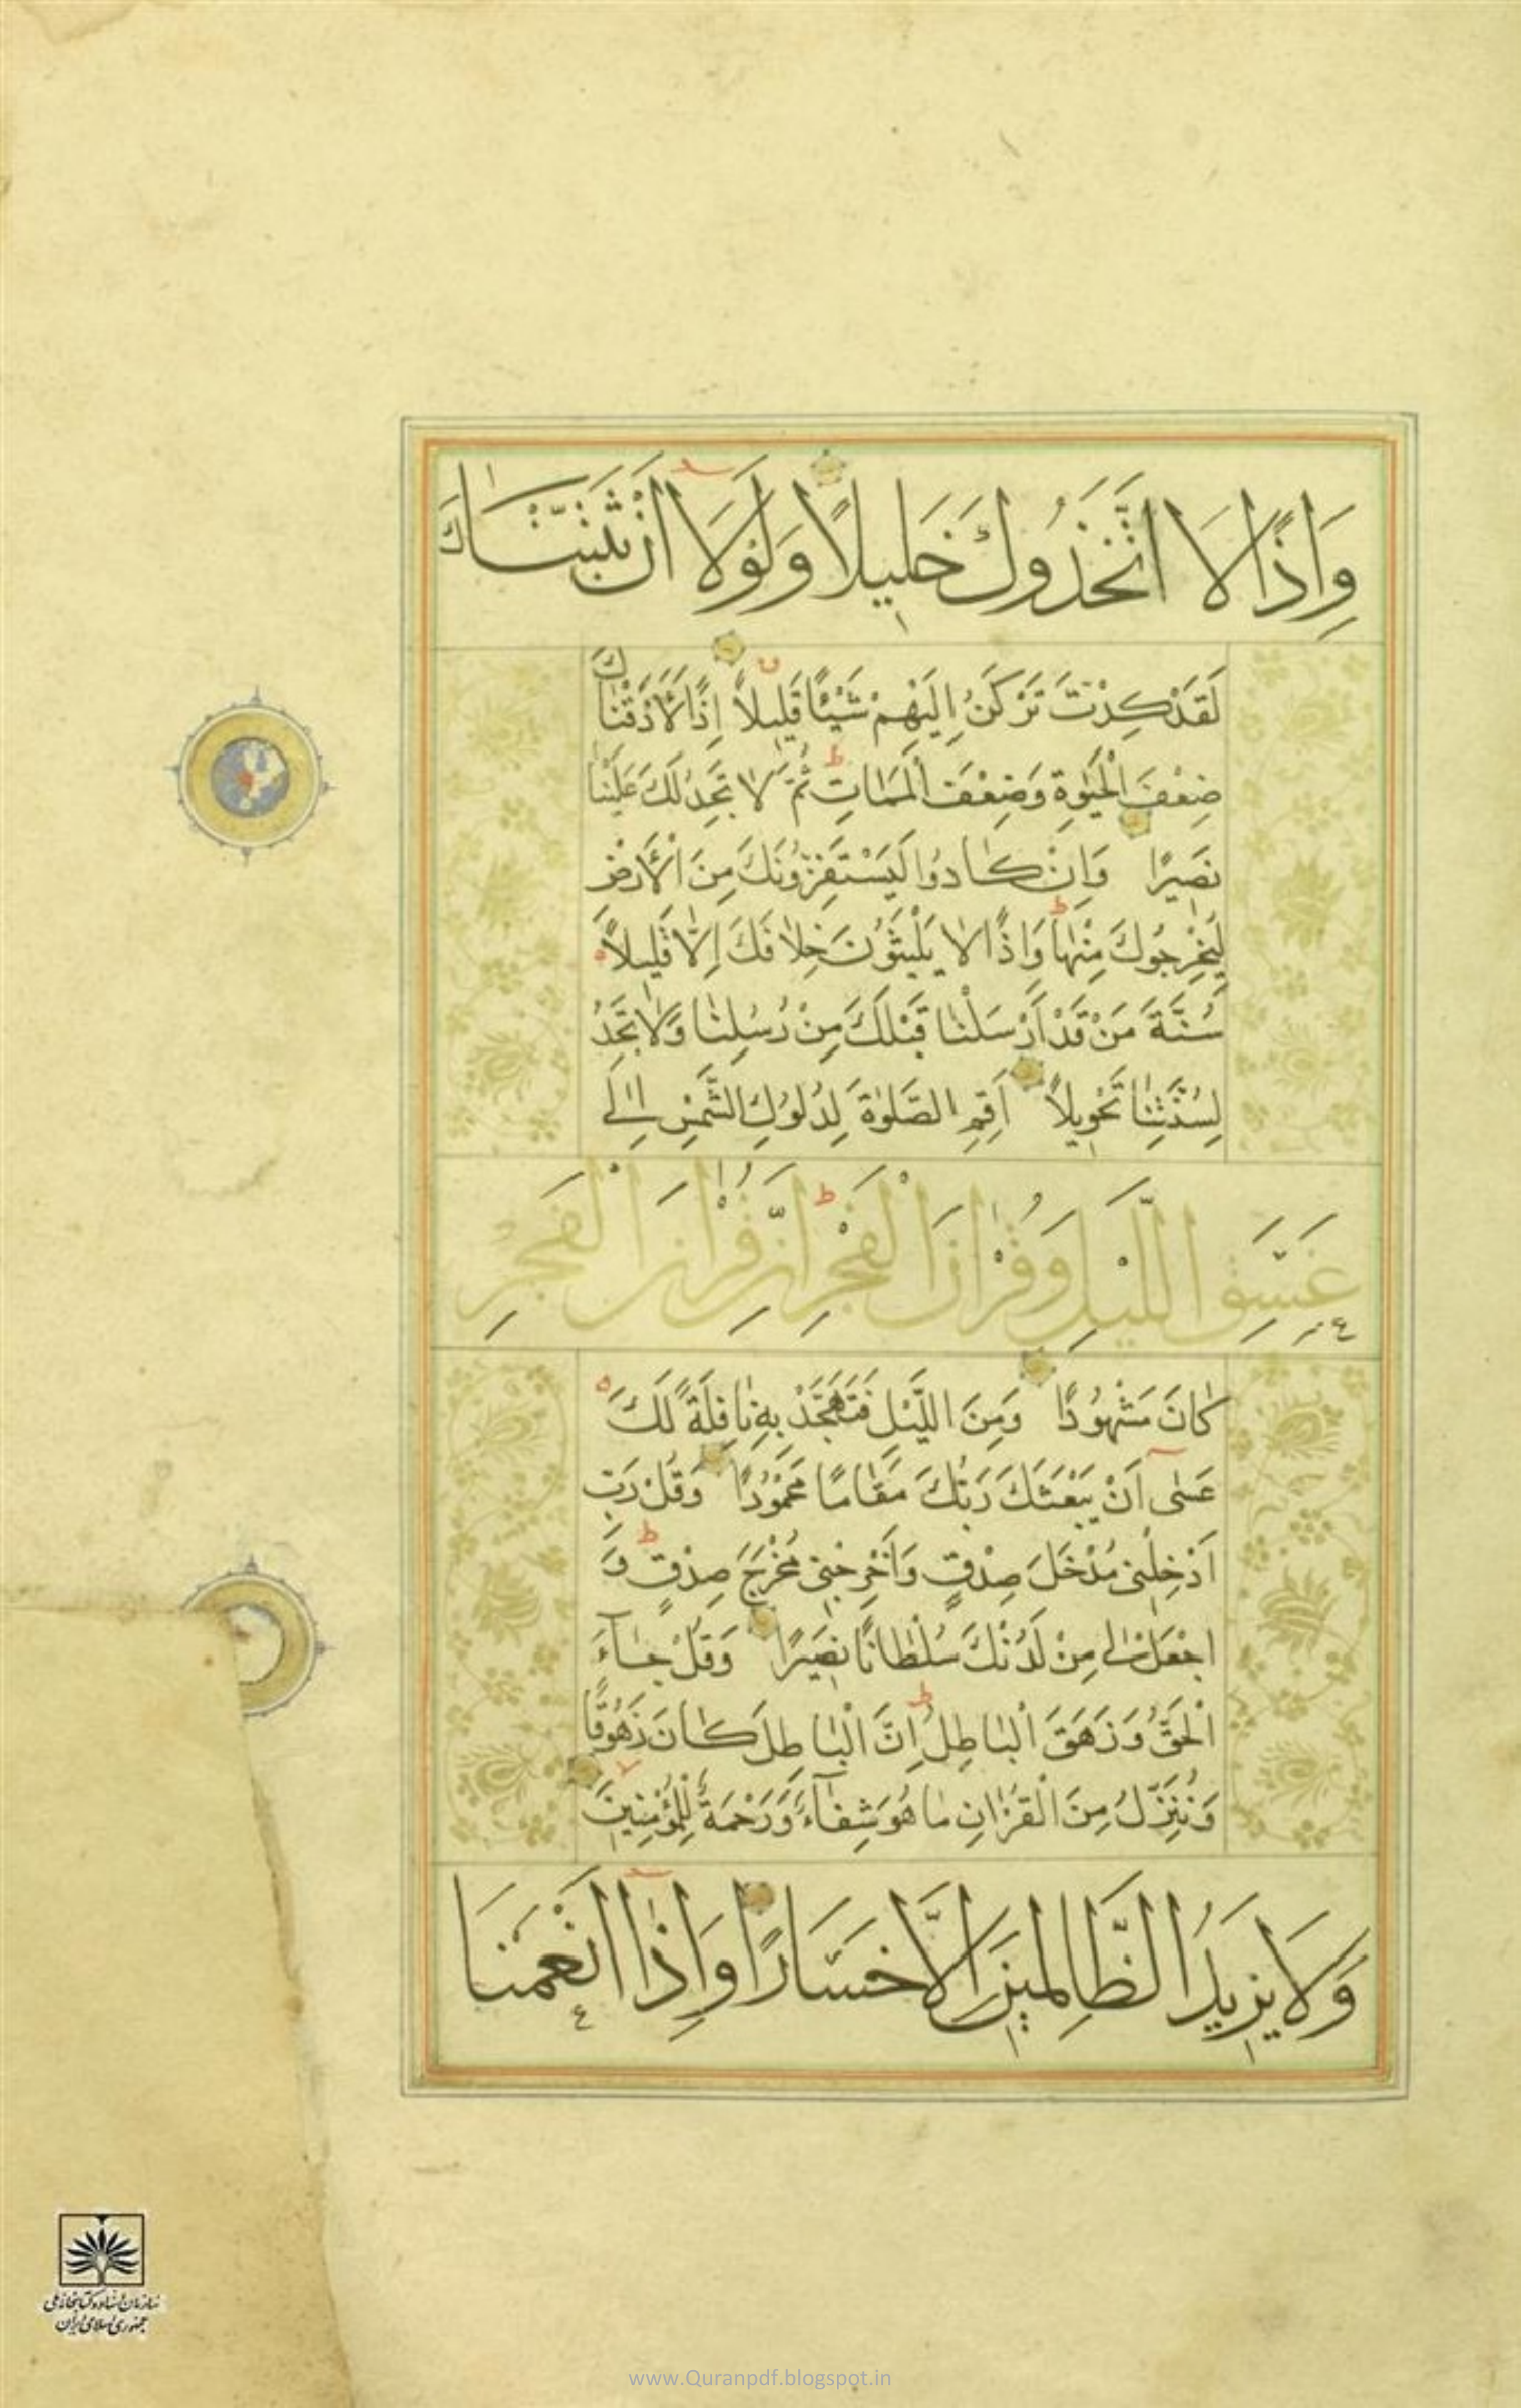 وَاِذًا لَا اتَّخَذُوكَ خَلِيلًا وَلَوْلَا اَنْ ثَبَّتْنَاكَ
لَقَدْ كِدْتَ تَرْكَنُ اِلَيْهِمْ شَيْئًا قَلِيلًا اِذًا لَاَذَقْنَاكَ
ضِعْفَ الْحَيٰوةِ وَضِعْفَ الْمَمَاتِ ثُمَّ لَا تَجِدُ لَكَ عَلَيْنَا
نَصِيرًا وَاِنْ كَادُوا لَيَسْتَفِزُّونَكَ مِنَ الْاَرْضِ
لِيُخْرِجُوكَ مِنْهَا وَاِذًا لَا يَلْبَثُونَ خِلَافَكَ اِلَّا قَلِيلًا
سُنَّةَ مَنْ قَدْ اَرْسَلْنَا قَبْلَكَ مِنْ رُسُلِنَا وَلَا تَجِدُ
لِسُنَّتِنَا تَحْوِيلًا اَقِمِ الصَّلٰوةَ لِدُلُوكِ الشَّمْسِ اِلٰى
غَسَقِ اللَّيْلِ وَقُرْاٰنَ الْفَجْرِ اِنَّ قُرْاٰنَ الْفَجْرِ
كَانَ مَشْهُودًا وَمِنَ اللَّيْلِ فَتَهَجَّدْ بِهِ نَافِلَةً لَكَ
عَسٰى اَنْ يَبْعَثَكَ رَبُّكَ مَقَامًا مَحْمُودًا وَقُلْ رَبِّ
اَدْخِلْنِي مُدْخَلَ صِدْقٍ وَاَخْرِجْنِي مُخْرَجَ صِدْقٍ وَ
اجْعَلْ لِي مِنْ لَدُنْكَ سُلْطَانًا نَصِيرًا وَقُلْ جَاءَ
الْحَقُّ وَزَهَقَ الْبَاطِلُ اِنَّ الْبَاطِلَ كَانَ زَهُوقًا
وَنُنَزِّلُ مِنَ الْقُرْاٰنِ مَا هُوَ شِفَاءٌ وَرَحْمَةٌ لِلْمُؤْمِنِينَ
وَلَا يَزِيدُ الظَّالِمِينَ اِلَّا خَسَارًا وَاِذَا اَنْعَمْنَا
سازمان اسناد و کتابخانه ملی
جمهوری اسلامی ایران
www.Quranpdf.blogspot.in